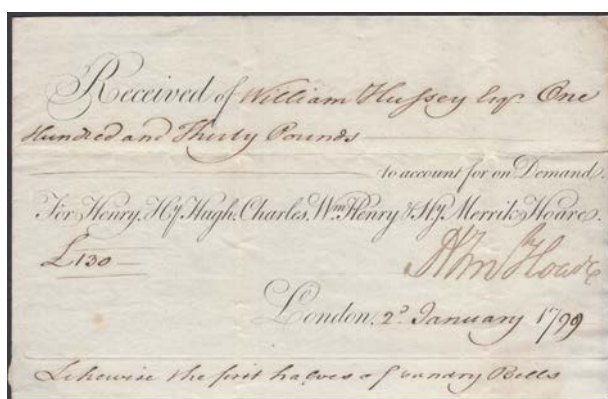 Received of William Hussey Esqr. One
Hundred and Thirty Pounds
to account for on Demand.
For Henry, Hy. Hugh, Charles, Wm. Henry & Hy. Merrik Hoare.
£130
Hoare
London, 2d January 1799
Likewise the first halves of sundry Bills